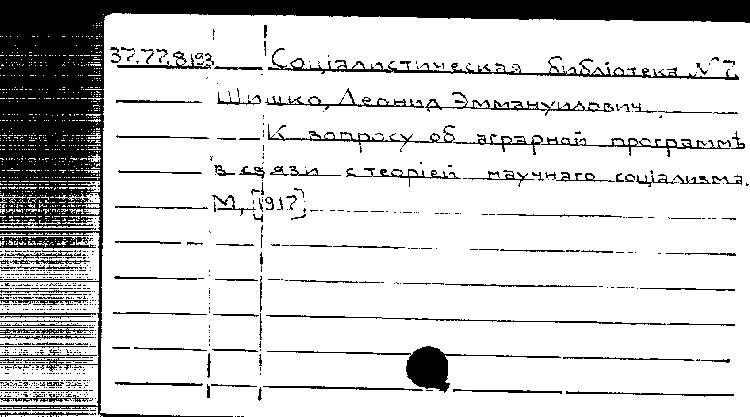 37.77.8193 Соціалистическая библіотека № 7
Шишко, Леонид Эммануилович.
К вопросу об аграрной программѣ
в связи с теоріей научнаго соціализма.
М, [1917]